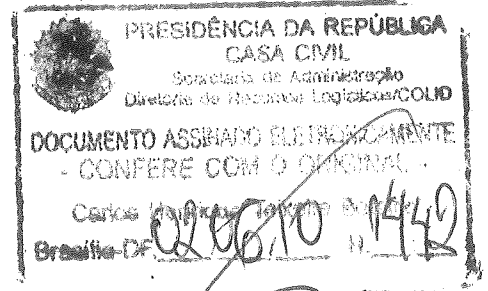 PRESIDÊNCIA DA REPÚBLICA
CASA CIVIL
Secretaria de Administração
Diretoria de Recursos Logísticos/COLID
DOCUMENTO ASSINADO ELETRONICAMENTE
- CONFERE COM O ORIGINAL -
Carlos Henrique
Brasília-DF, 02.06.10 1442